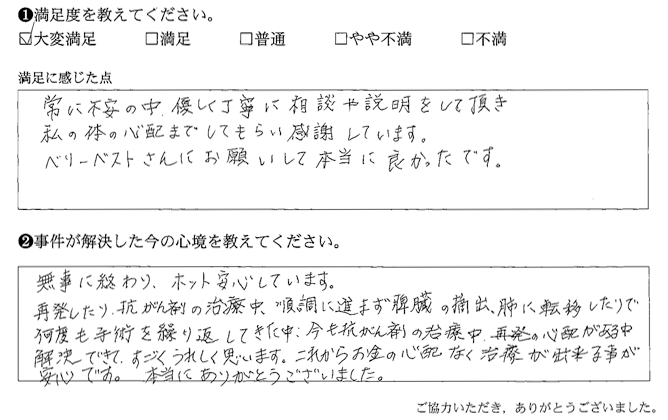 ❶満足度を教えてください。
☑大変満足 □満足 □普通 □やや不満 □不満
満足に感じた点
常に不安の中、優しく丁寧に相談や説明をして頂き
私の体の心配までしてもらい感謝しています。
ベリーベストさんにお願いして本当に良かったです。
❷事件が解決した今の心境を教えてください。
無事に終わり、ホット安心しています。
再発したり、抗がん剤の治療中、順調に進まず脾臓の摘出、肺に転移したりで
何度も手術を繰り返してきた中、今も抗がん剤の治療中、再発の心配がある中
解決できて、すごくうれしく思います。これからお金の心配なく治療が出来る事が
安心です。 本当にありがとうございました。
ご協力いただき、ありがとうございました。